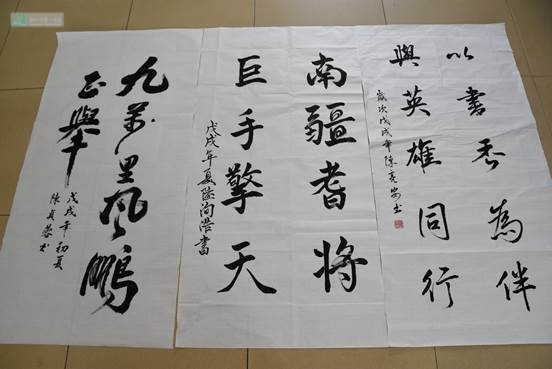 以書香為伴
與英雄同行
歲次戊戌年陳
南疆耆将
巨手擎天
戊戌年夏 浩書
九萬里风鵬
正舉
戊戌年初夏
陳